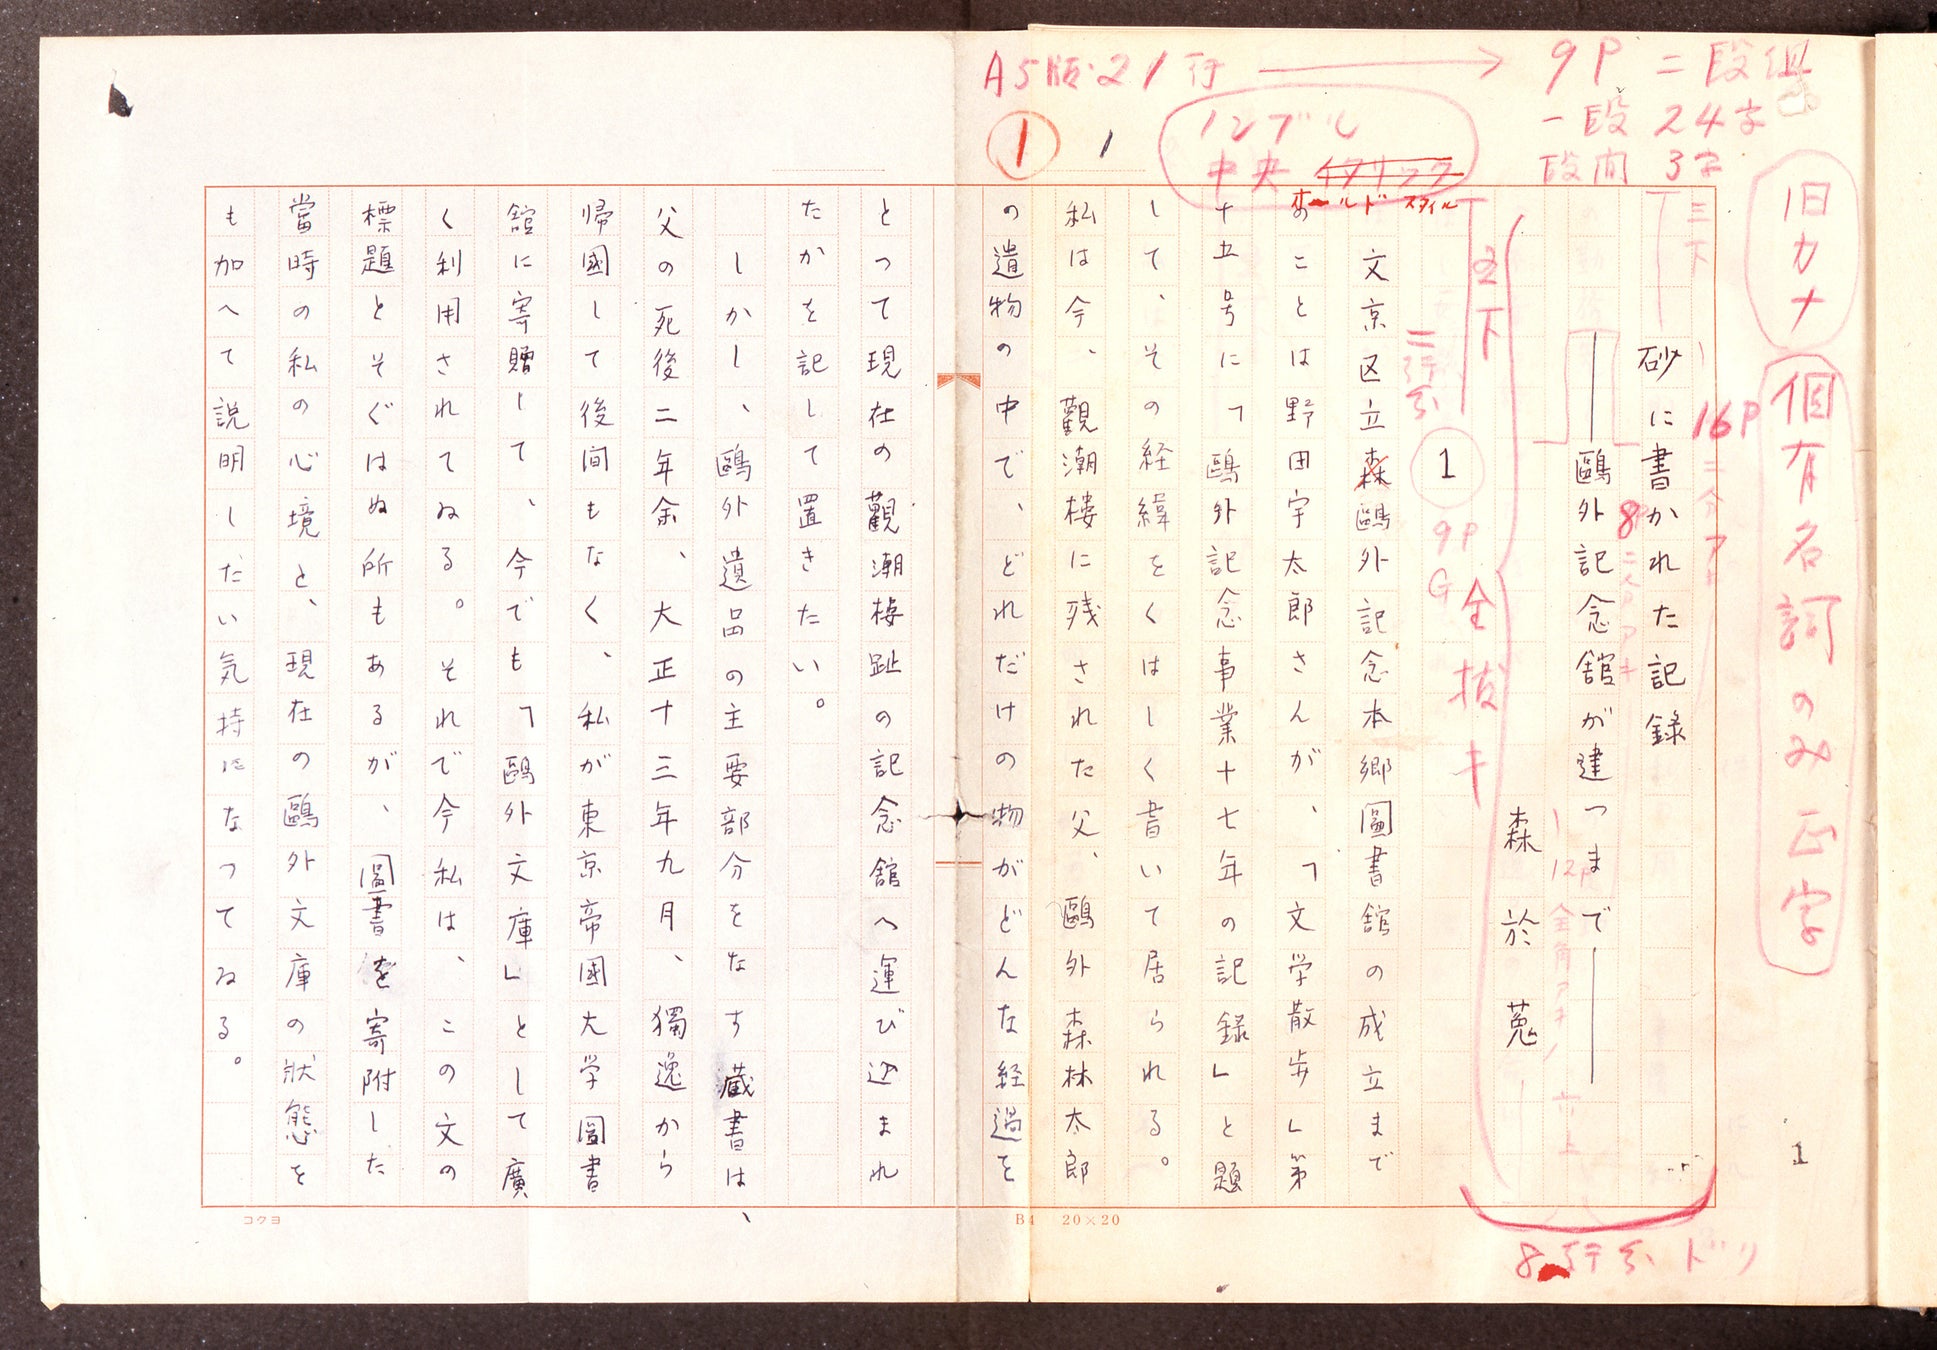 A5版・21行 → 9P 二段組
一段 24字
段間 3字
ノンブル
中央 イタリック
オールドスタイル
1
1
旧カナ
個有名詞のみ正字
三下
砂に書かれた記録
16P
――鷗外記念舘が建つまで――
8P
森於菟
12P
8行分ドリ
1
2下
全抜キ
二行分
1
9P
G
文京区立森鷗外記念本郷圖書舘の成立まで
のことは野田宇太郎さんが、「文学散歩」第
十五号に「鷗外記念事業十七年の記録」と題
して、その経緯をくはしく書いて居られる。
私は今、觀潮楼に残された父、鷗外森林太郎
の遺物の中で、どれだけの物がどんな経過を
とつて現在の觀潮楼趾の記念舘へ運び込まれ
たかを記して置きたい。
しかし、鷗外遺品の主要部分をなす蔵書は、
父の死後二年余、大正十三年九月、獨逸から
帰國して後間もなく、私が東京帝國大学圖書
舘に寄贈して、今でも「鷗外文庫」として廣
く利用されてゐる。それで今私は、この文の
標題とそぐはぬ所もあるが、圖書を寄附した
當時の私の心境と、現在の鷗外文庫の狀態を
も加へて説明したい気持になつてゐる。
コクヨ
B4 20×20